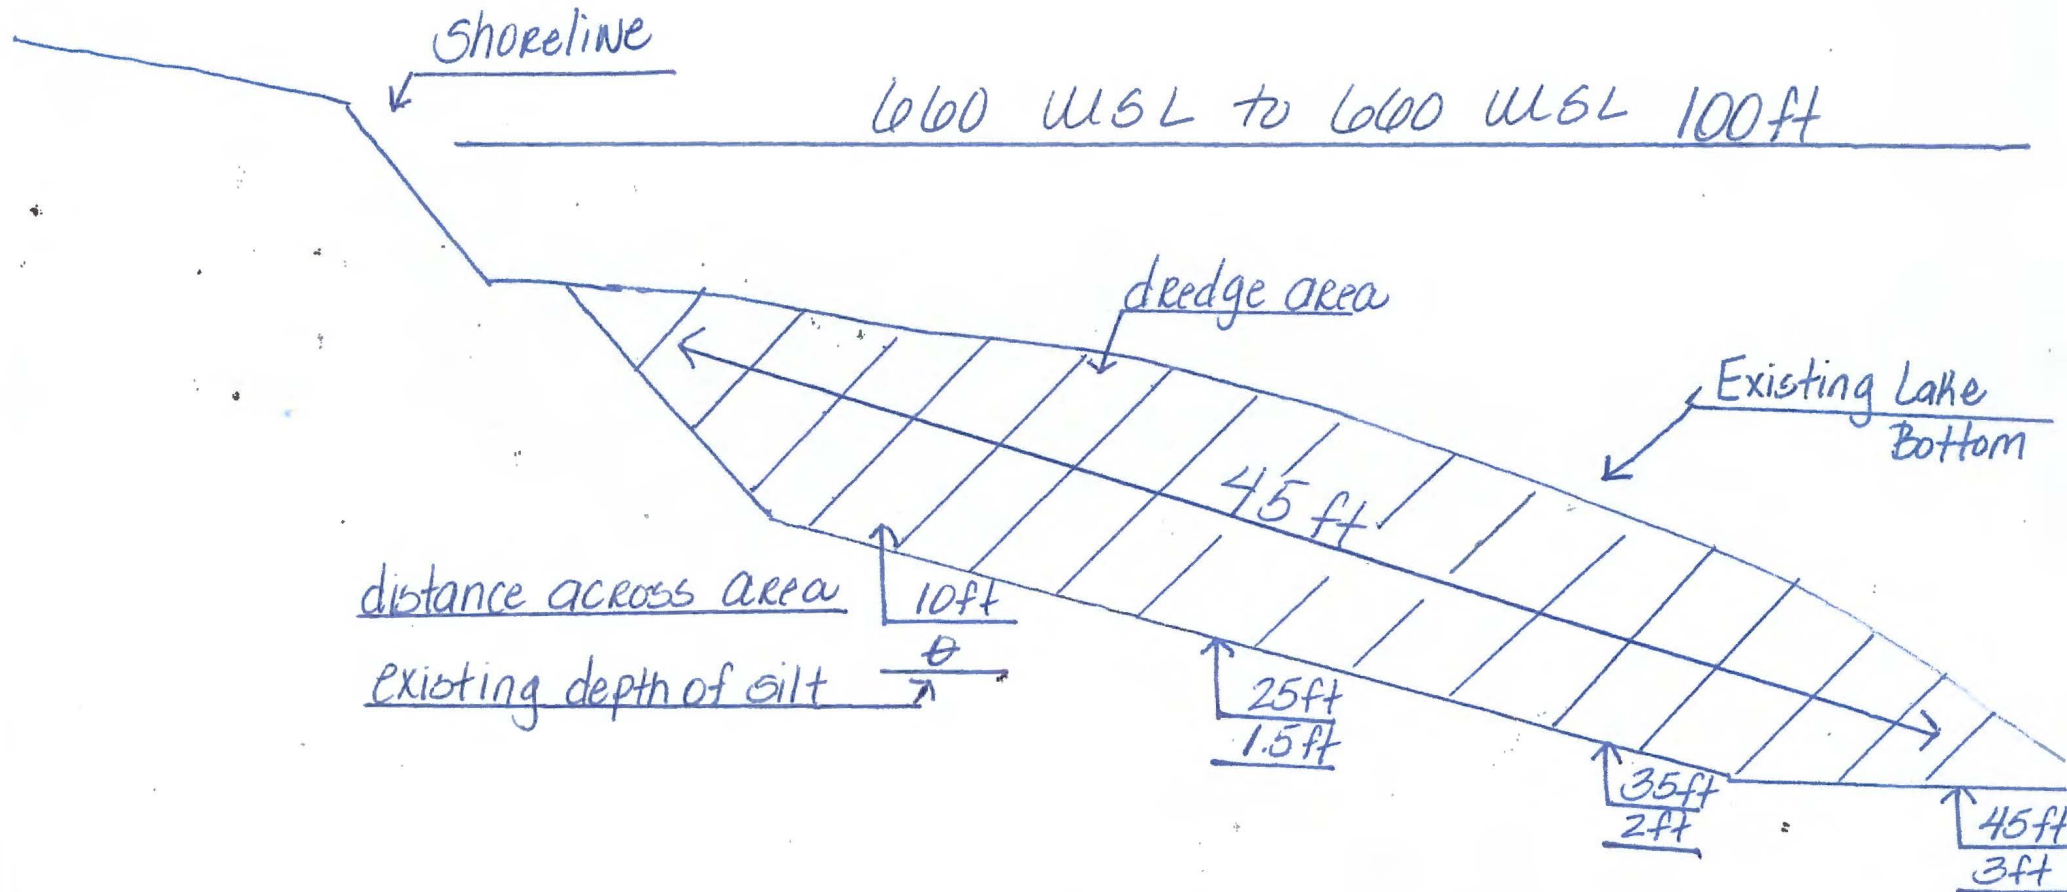 Shoreline
660 MSL to 660 MSL 100ft
dredge area
Existing Lake
Bottom
45 ft
distance across area
10ft
existing depth of silt
0
25ft
1.5ft
35ft
2ft
45ft
3ft